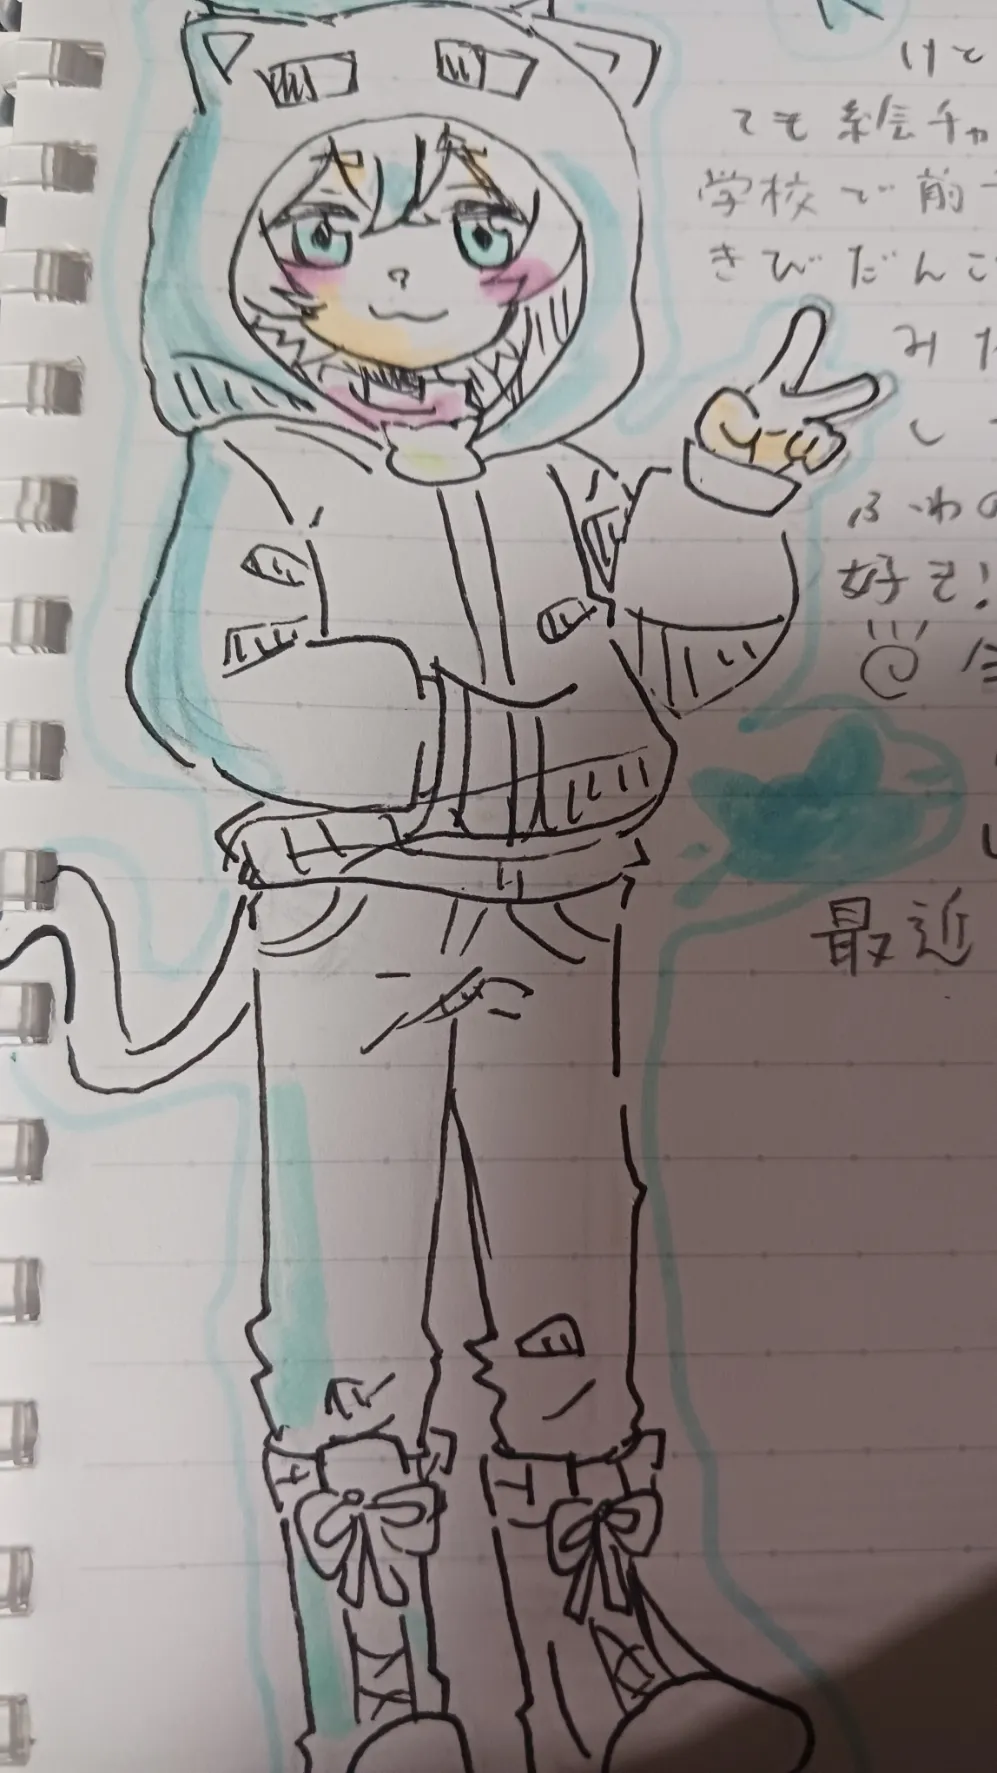 けと
ても絵チャ
学校で前
きびだんご
みた
し
ふわの
好き!
最近